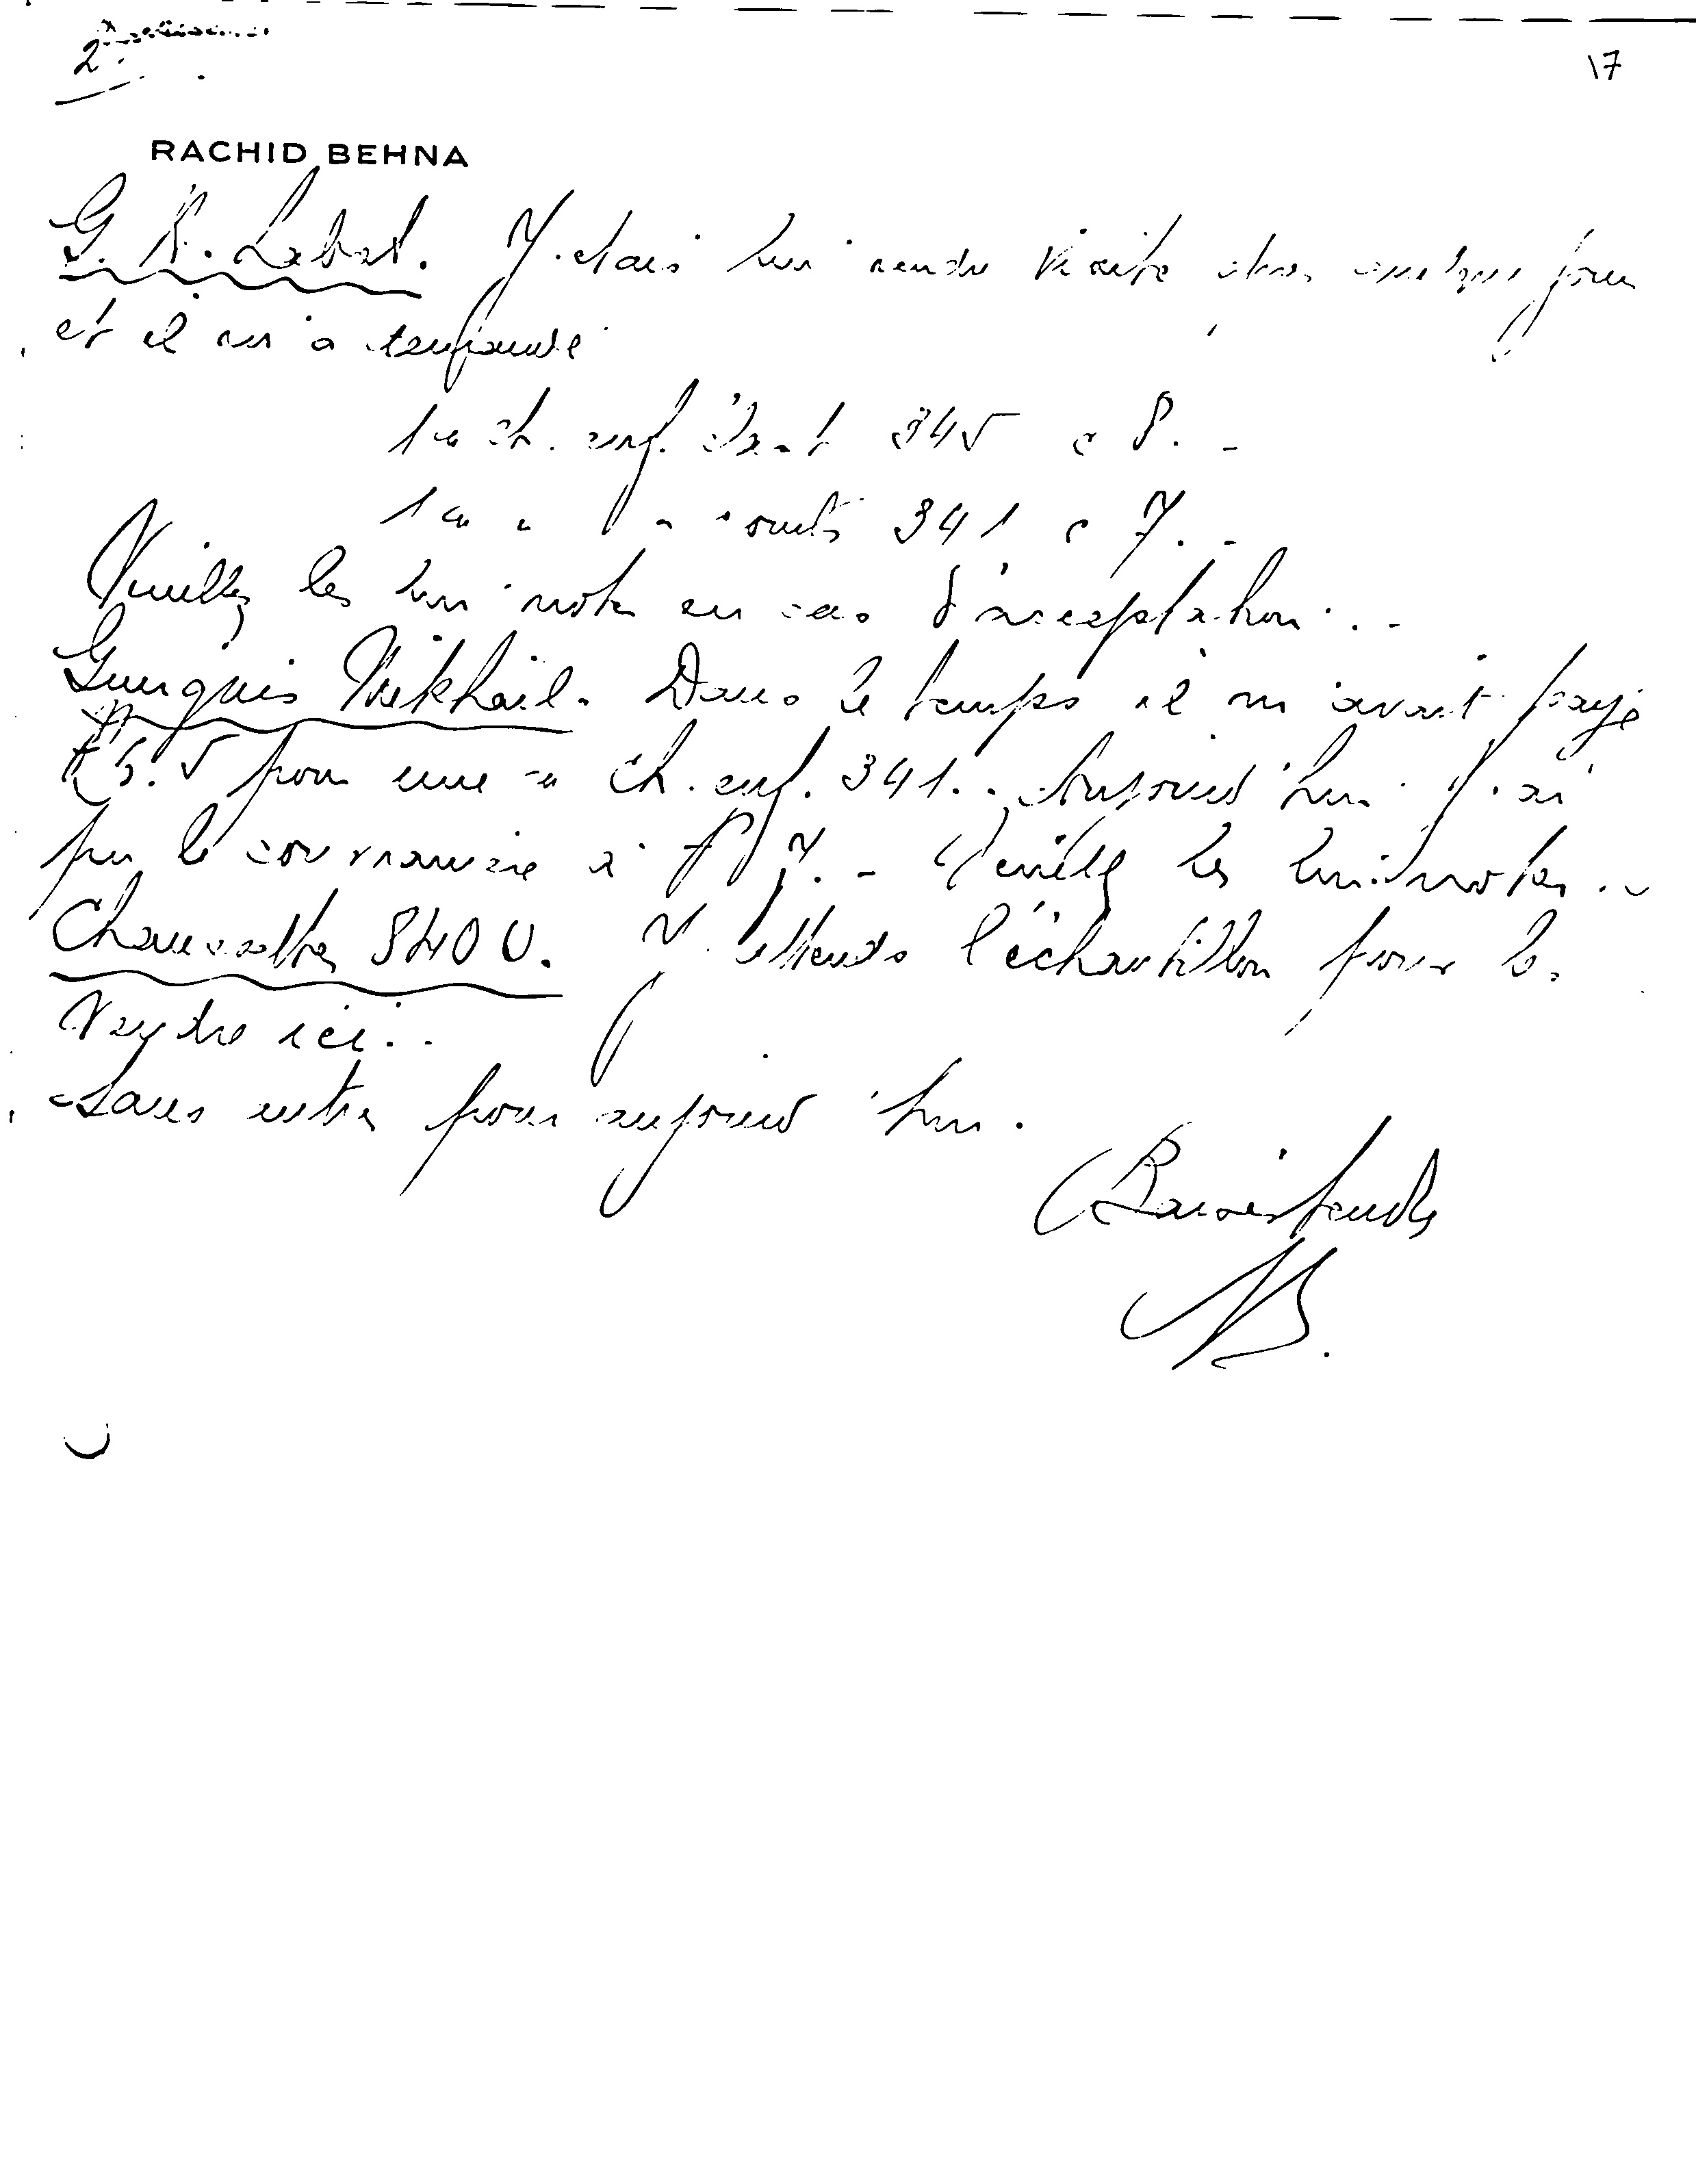 2
17
RACHID BEHNA
G. R. Lebet. J'etais lui rendre visite jour
et il m'a
1 ca ch. enf. 345 a 8. -
1 ca " " " 341 a 7. -
Veuillez les lui noter en cas d'acceptation. . -
Guirguis Mikhail. Dans le temps il m'avait payé
5.5 pour une ca ch. enf. 341. - Aujourd'hui j'ai
pu le convaincre à 7. - Veuillez les lui noter. -
Chaussettes 840 U. J'attends l'échantillon pour le
vendre ici. -
Sans autre pour aujourd'hui.